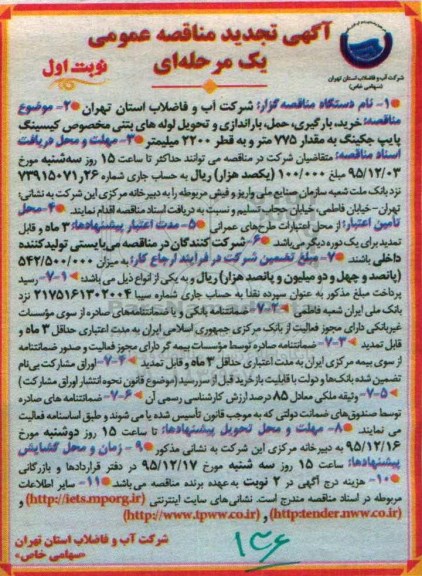 آگهی تجدید مناقصه عمومی
یک مرحله‌ای
نوبت اول
شرکت آب و فاضلاب استان تهران
(سهامی خاص)
۱- نام دستگاه مناقصه گزار: شرکت آب و فاضلاب استان تهران ۲- موضوع
مناقصه: خرید، بارگیری، حمل، باراندازی و تحویل لوله های بتنی مخصوص کیسینگ
پایپ جکینگ به مقدار ۷۷۵ متر و به قطر ۲۲۰۰ میلیمتر ۳- مهلت و محل دریافت
اسناد مناقصه: متقاضیان شرکت در مناقصه می توانند حداکثر تا ساعت ۱۵ روز سه‌شنبه مورخ
۹۵/۱۲/۰۳ مبلغ ۱۰۰/۰۰۰ (یکصد هزار) ریال به حساب جاری شماره ۲۶ر۷۳۹۱۵۰۷۱
نزد بانک ملت شعبه سازمان صنایع ملی واریز و فیش مربوطه را به دبیرخانه مرکزی این شرکت به نشانی:
تهران - خیابان فاطمی، خیابان حجت دوست تسلیم و نسبت به دریافت اسناد مناقصه اقدام نمایند. ۴- محل
تأمین اعتبار: از محل اعتبارات طرح‌های عمرانی ۵- مدت اعتبار پیشنهادها: ۳ ماه و قابل
تمدید برای یک دوره دیگر می‌باشد. ۶- شرکت کنندگان در مناقصه می‌بایستی تولیدکننده
داخلی باشند. ۷- مبلغ تضمین شرکت در فرآیند ارجاع کار: به میزان ۵۴۲/۵۰۰/۰۰۰
(پانصد و چهل و دو میلیون و پانصد هزار) ریال و به یکی از انواع ذیل می باشد: ۱-۷- رسید
پرداخت مبلغ مذکور به عنوان سپرده نقداً به حساب جاری شماره سیبا ۲۱۷۵۱۶۱۳۰۲۰۰۴ نزد
بانک ملی ایران شعبه فاطمی ۲-۷- ضمانتنامه بانکی و یا ضمانتنامه‌های صادره از سوی مؤسسات
غیربانکی دارای مجوز فعالیت از بانک مرکزی جمهوری اسلامی ایران به مدت اعتباری حداقل ۳ ماه و
قابل تمدید ۳-۷- ضمانتنامه صادره توسط مؤسسات بیمه گر دارای مجوز فعالیت و صدور ضمانتنامه
از سوی بیمه مرکزی ایران به مدت اعتباری حداقل ۳ ماه و قابل تمدید ۴-۷- اوراق مشارکت بی‌نام
تضمین شده بانک‌ها و دولت با قابلیت بازخرید قبل از سررسید (موضوع قانون نحوه انتشار اوراق مشارکت)
۵-۷- وثیقه ملکی معادل ۸۵ درصد ارزش کارشناسی رسمی آن ۶-۷- ضمانتنامه های صادره
توسط صندوق‌های ضمانت دولتی که به موجب قانون تأسیس شده یا می شوند و طبق اساسنامه فعالیت
می نمایند. ۸- مهلت و محل تحویل پیشنهادها: تا ساعت ۱۵ روز دوشنبه مورخ
۹۵/۱۲/۱۶ به دبیرخانه مرکزی این شرکت به نشانی مذکور ۹- زمان و محل گشایش
پیشنهادها: ساعت ۱۵ روز سه شنبه مورخ ۹۵/۱۲/۱۷ در دفتر قراردادها و بازرگانی
۱۰- هزینه درج آگهی در ۲ نوبت به عهده برنده مناقصه می باشد. ۱۱- سایر اطلاعات
مربوطه در اسناد مناقصه مندرج است. نشانی‌های سایت اینترنتی (http://iets.mporg.ir) و
(http:tender.nww.co.ir) و (http://www.tpww.co.ir)
شرکت آب و فاضلاب استان تهران
«سهامی خاص»
۱۳۶